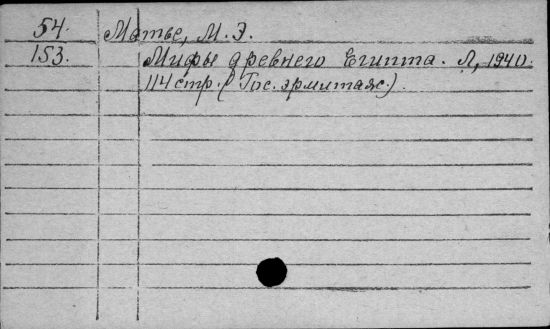 54. Матье, М. Э.
153. Мифы древнего Египта. Л, 1940.
114 стр. (Гос. эрмитаж.).